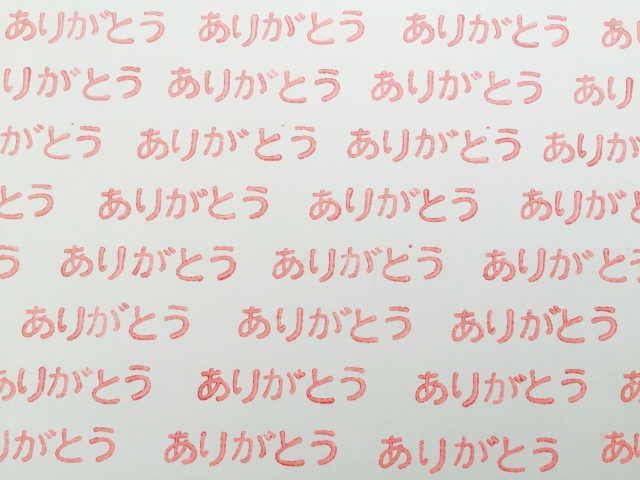 ありがとう ありがとう ありがとう あ
りがとう ありがとう ありがとう あり
がとう ありがとう ありがとう ありが
とう ありがとう ありがとう ありがと
う ありがとう ありがとう ありがとう
ありがとう ありがとう ありがとう
ありがとう ありがとう ありがとう あ
りがとう ありがとう ありがとう あ